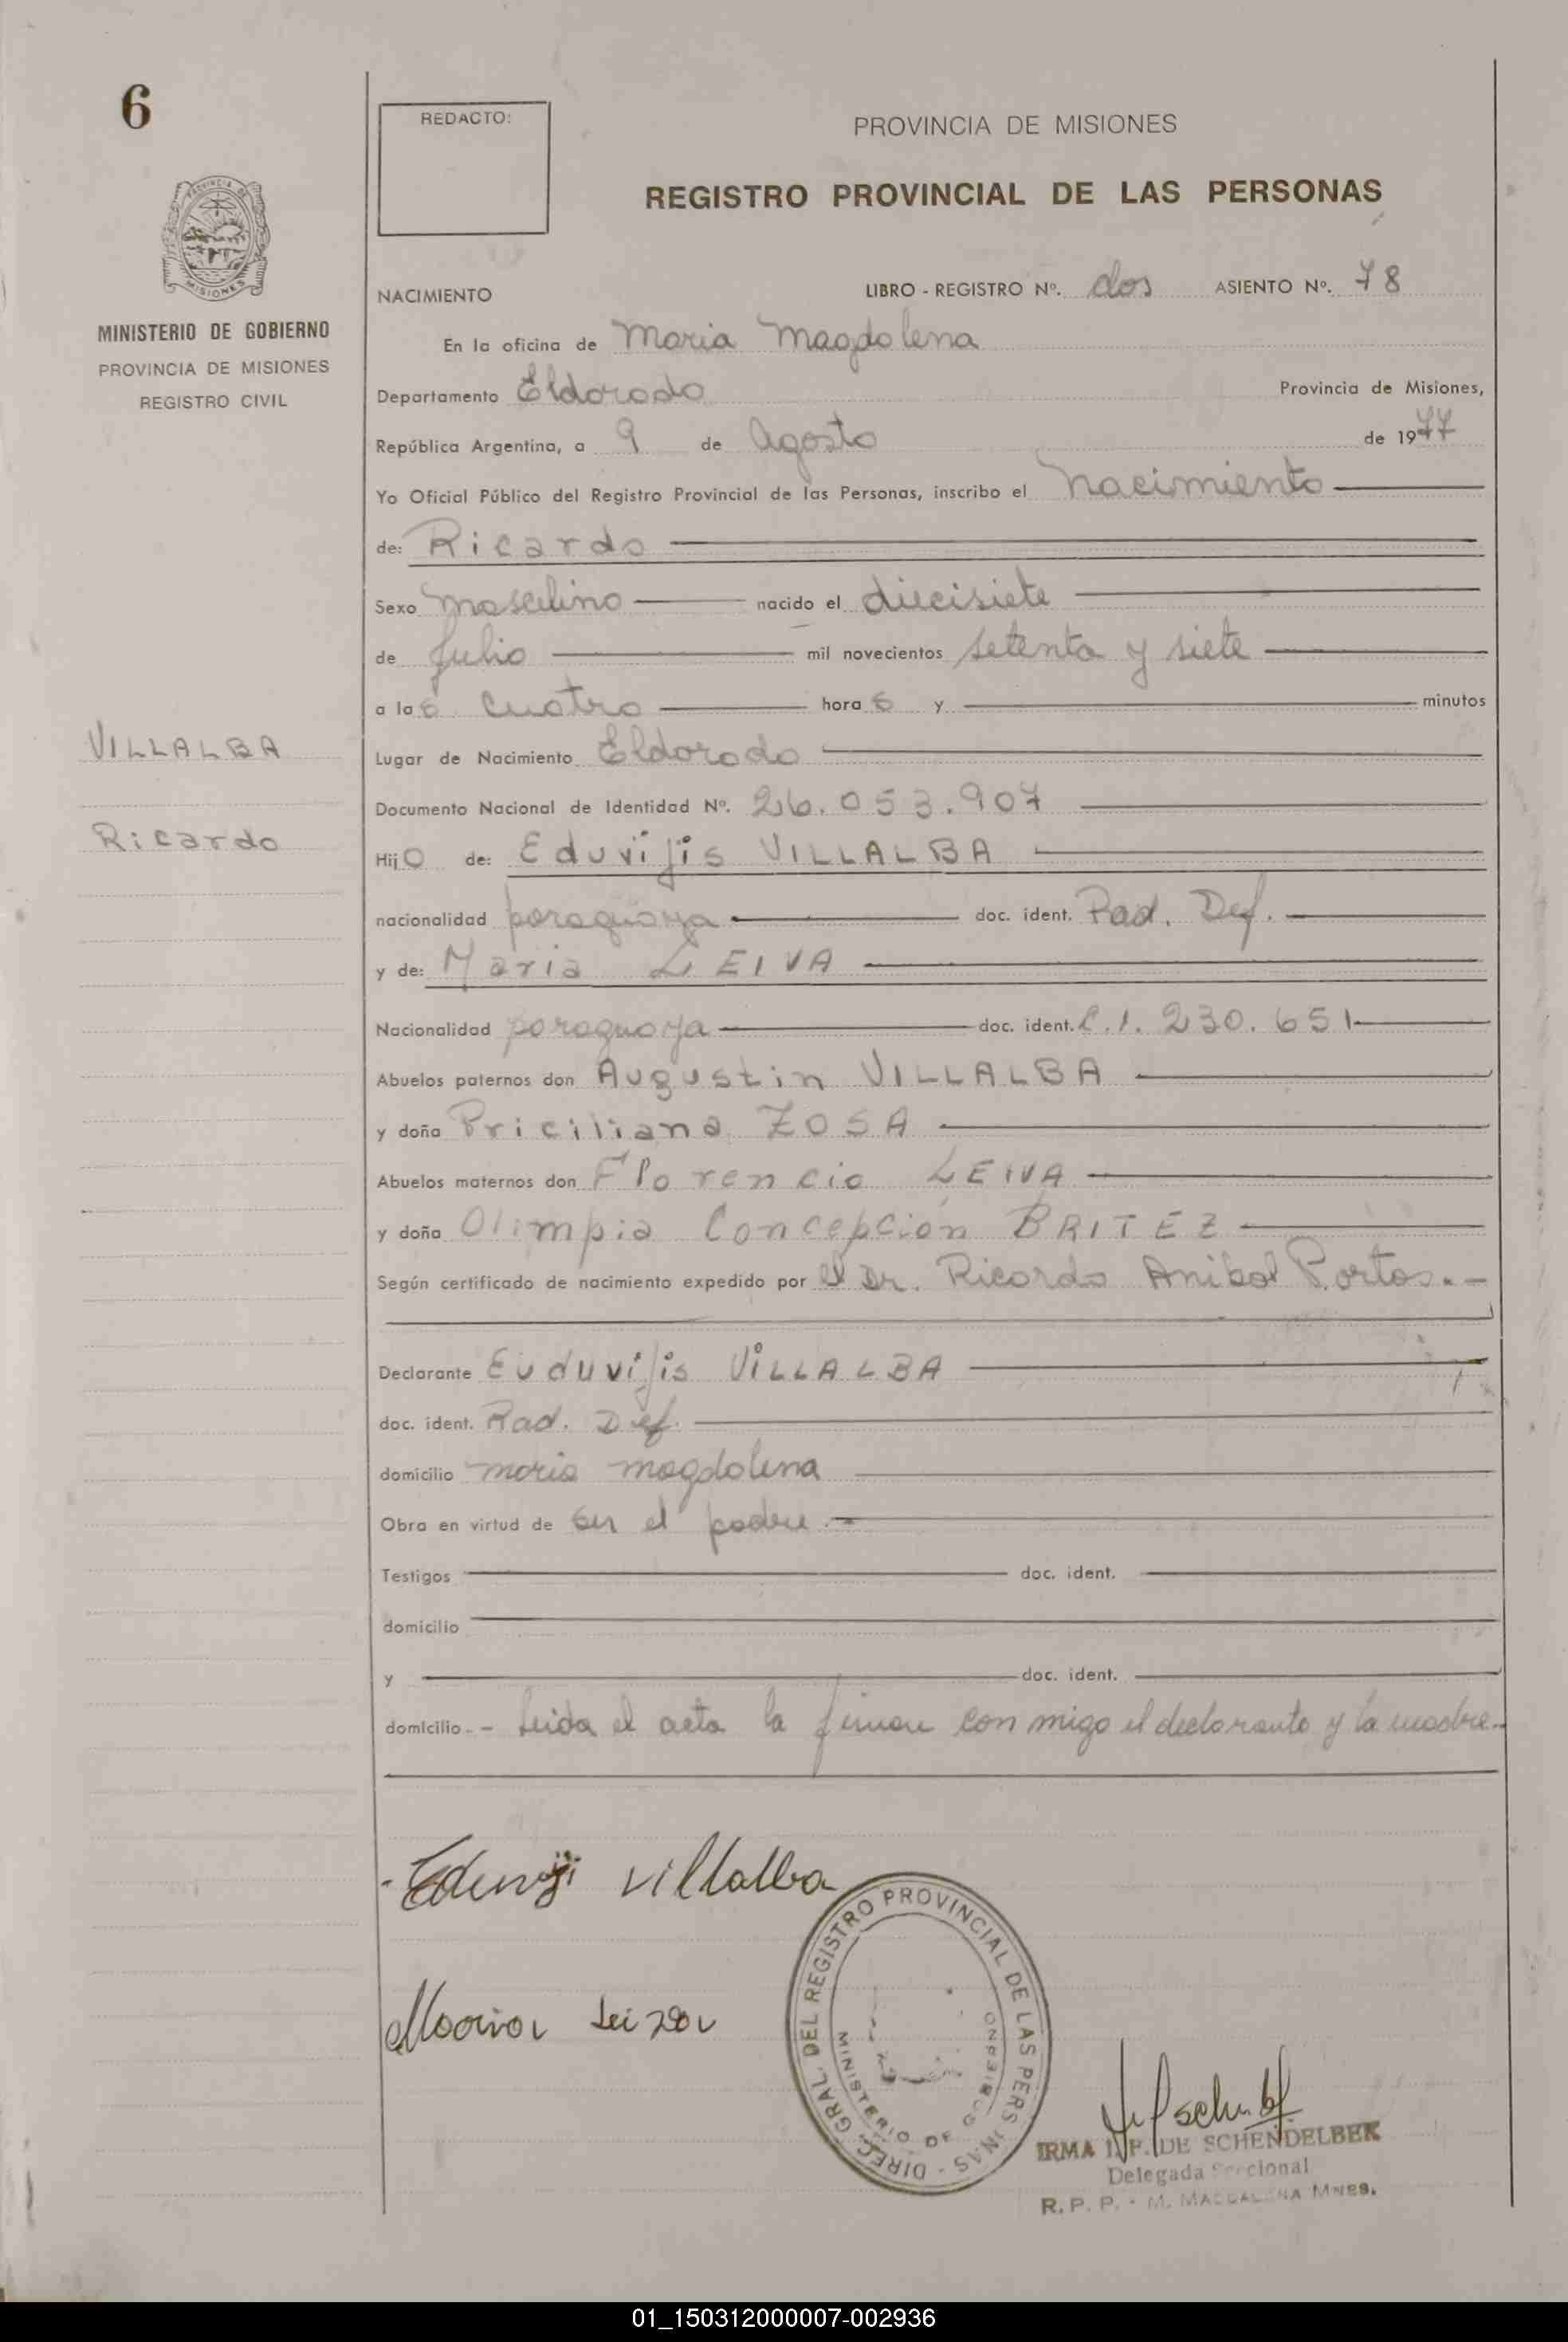 6
REDACTO:
PROVINCIA DE MISIONES
REGISTRO PROVINCIAL DE LAS PERSONAS
MISIONES
MINISTERIO DE GOBIERNO
PROVINCIA DE MISIONES
REGISTRO CIVIL
NACIMIENTO LIBRO - REGISTRO Nº. dos ASIENTO Nº. 78
En la oficina de Maria Magdalena
Departamento Eldorado Provincia de Misiones,
República Argentina, a 9 de Agosto de 1977
Yo Oficial Público del Registro Provincial de las Personas, inscribo el Nacimiento
de: Ricardo
Sexo Masculino nacido el diecisiete
de Julio mil novecientos setenta y siete
a las cuatro horas y minutos
VILLALBA
Lugar de Nacimiento Eldorado
Documento Nacional de Identidad Nº. 26.053.907
Ricardo
Hijo de: Eduvijis VILLALBA
nacionalidad paraguaya doc. ident. Rad. Def.
y de: Maria LEIVA
Nacionalidad paraguaya doc. ident. C.I. 230.651
Abuelos paternos don Augustin VILLALBA
y doña Priciliana ZOSA
Abuelos maternos don Florencio LEIVA
y doña Olimpia Concepción BRITEZ
Según certificado de nacimiento expedido por el Dr. Ricardo Anibal Portas.-
Declarante Euduvijis VILLALBA
doc. ident. Rad. Def.
domicilio maria magdalena
Obra en virtud de ser el padre.-
Testigos doc. ident.
domicilio
y doc. ident.
domicilio.- Leida el acta la firman con migo el declarante y la madre.
Eduvijis Villalba
DIREC. GRAL. DEL REGISTRO PROVINCIAL DE LAS PERSONAS -
MINISTERIO DE GOBIERNO
Maria
IRMA DE SCHENDELBEK
Delegada Seccional
R. P. P. - M. MAGDALENA MNES.
01_150312000007-002936